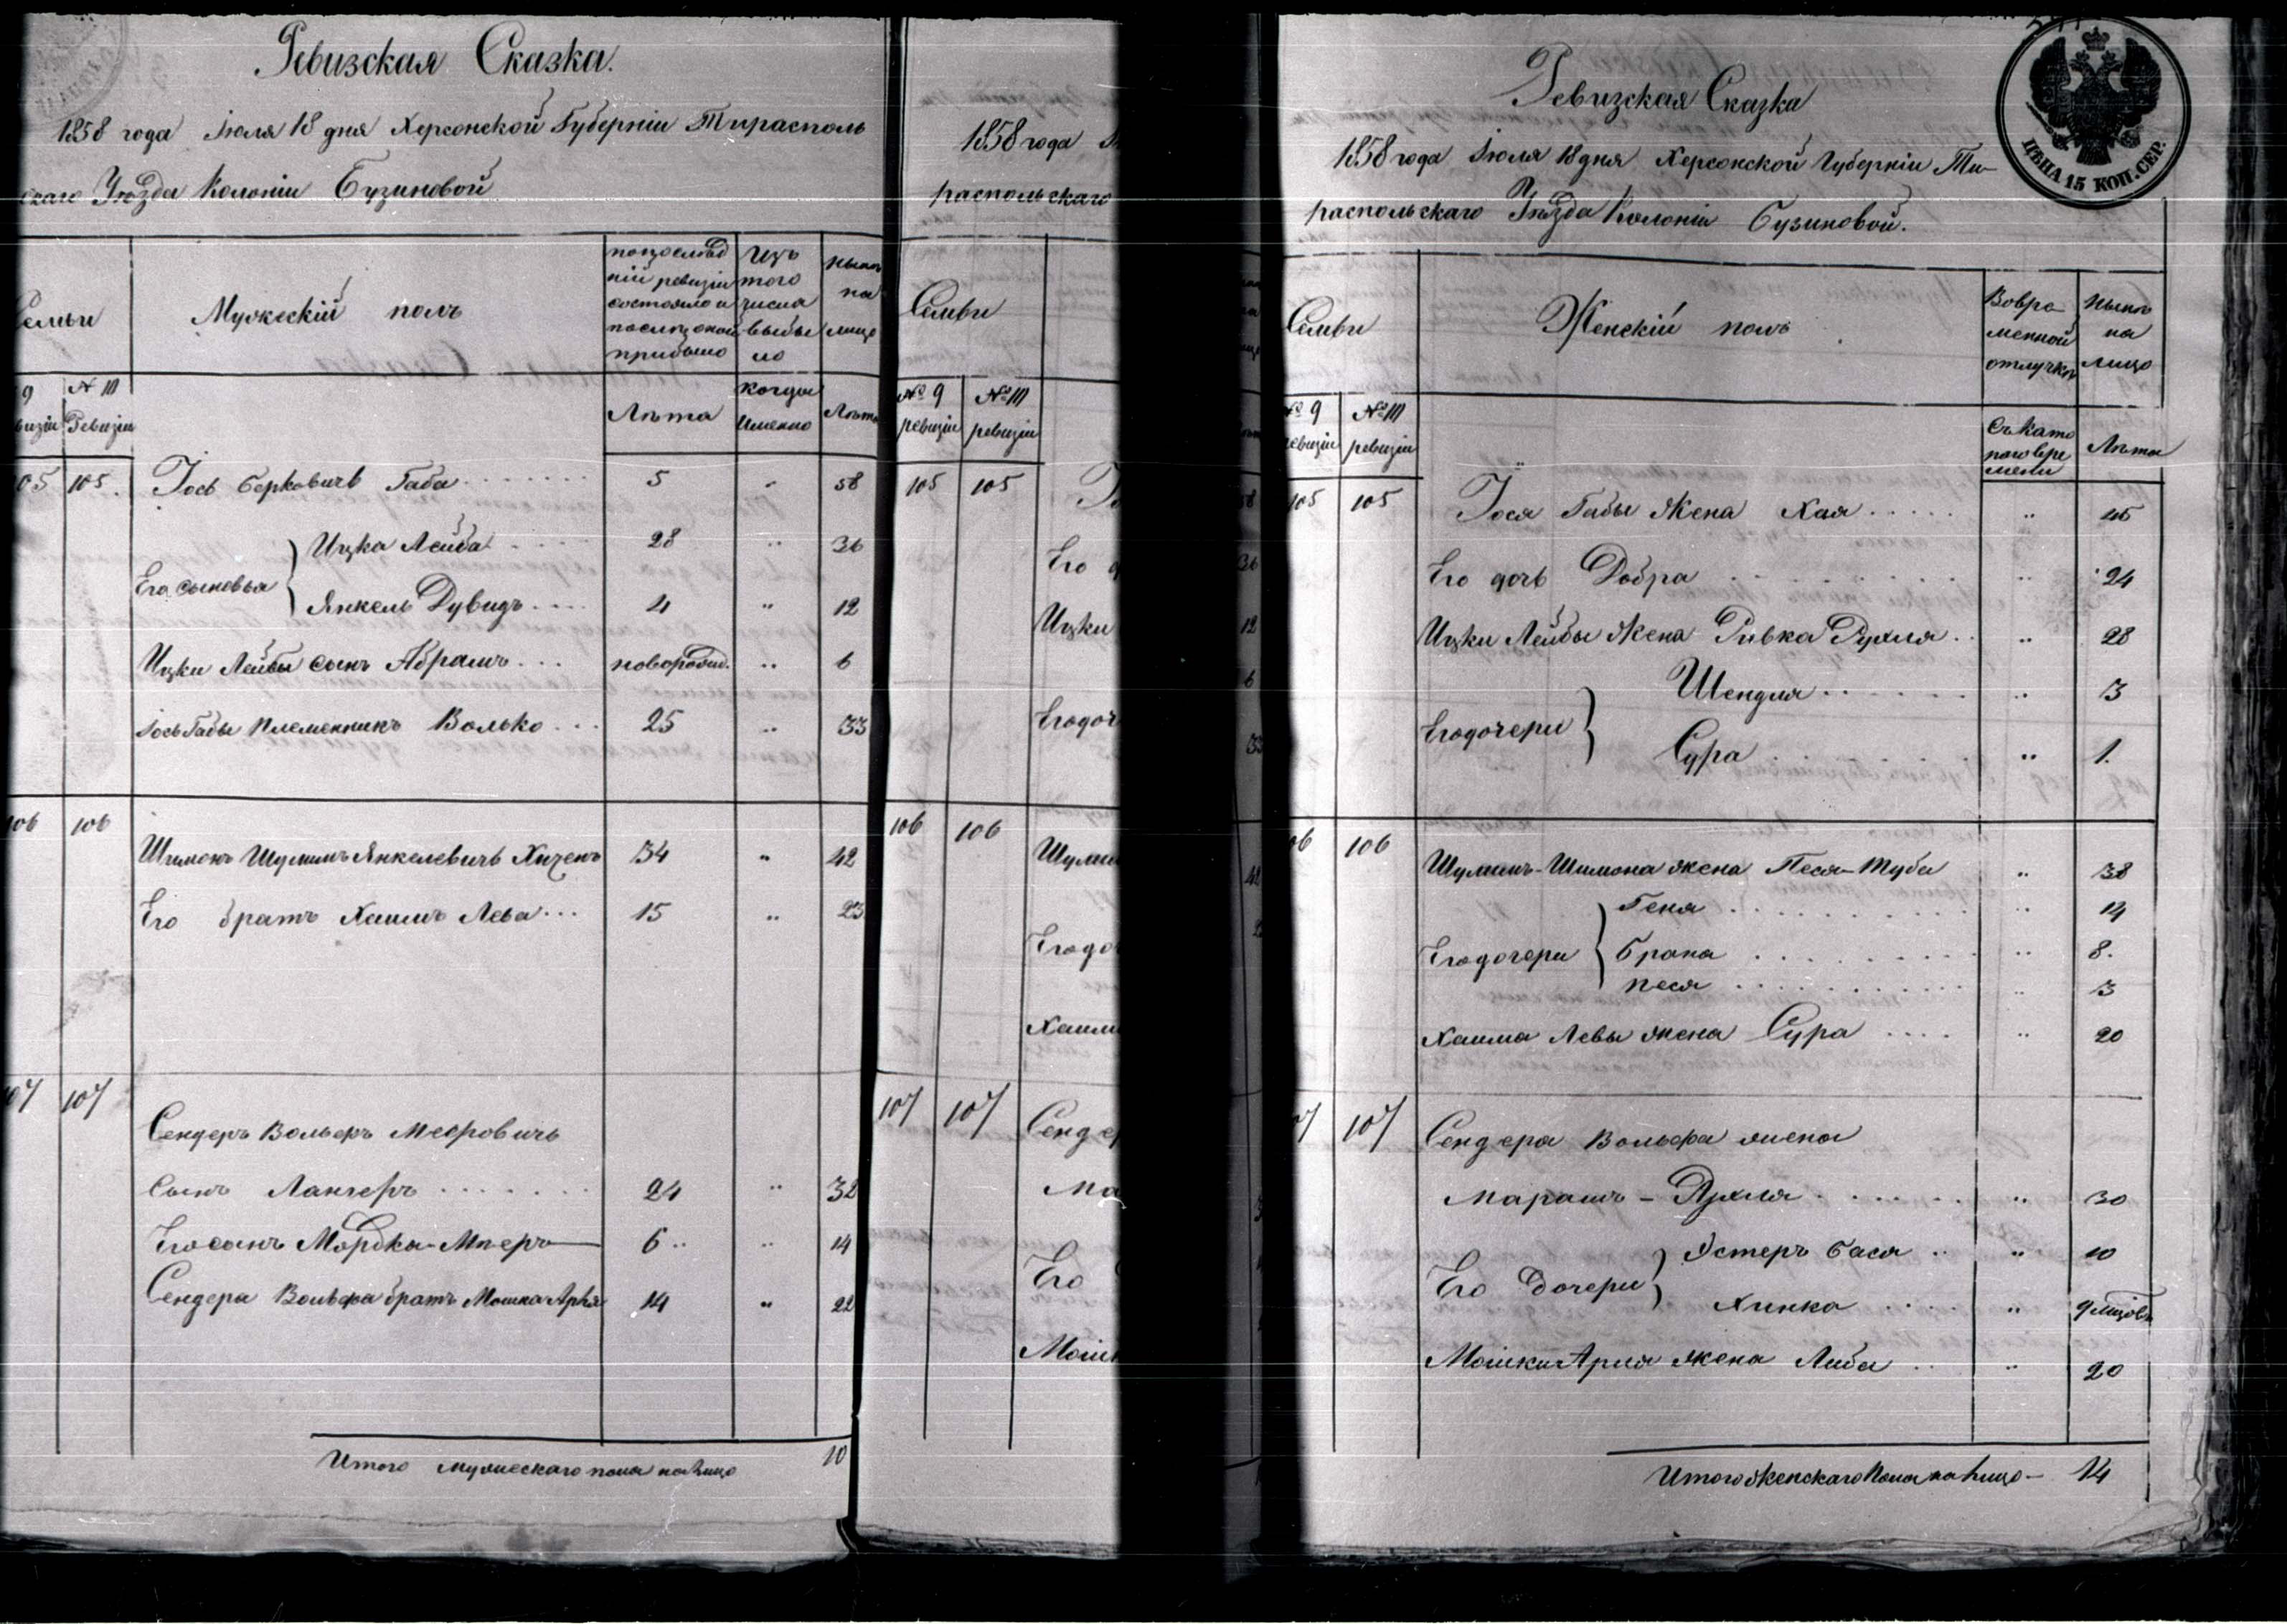 Ревизская Сказка.
1858 года Июля 18 дня Херсонской Губерніи Тирасполь
скаго Уѣзда Колоніи Бузиновой
Семьи
Мужескій полъ
По послѣд
ній ревизіи
состояло и
после оной
прибыло
Изъ
того
числа
выбы
ло
Нынѣ
на
лицо
9 № 10
визіи Ревизіи
Лѣта
когда
именно
Лѣта
05 105. Іось Берковичъ Габа 5 " 58
Его сыновья
Ицка Лейба 28 " 36
Янкель Дувидъ 4 " 12
Ицки Лейбы сынъ Абрамъ новорожд. " 6
Іось Габы племенникъ Волько 25 " 33
106 106
Шимонъ Шулимъ Янкелевичъ Хиченъ 34 " 42
Его братъ Хаимъ Лева 15 " 23
107 107
Сендеръ Вольфъ Меэровичъ
Сынъ Лангеръ 24 " 32
Его сынъ Мордка-Мѣеръ 6 " 14
Сендера Вольфа братъ Мошка Арья 14 " 22
Итого мужескаго пола на лицо 10
1858 года
распольскаго
Семьи
№ 9 № 10
ревизіи ревизіи
105 105
Его д
Ицки
Его доч
106 106 Шулим
Его до
Хаим
107 107 Сендер
Ма
Его
Мошк
Ревизская Сказка
1858 года Іюля 18 дня Херсонской Губерніи Ти-
распольскаго Уѣзда Колоніи Бузиновой.
ЦѢНА 15 КОП. СЕР.
Семьи
Женскій полъ
Во вре
менной
отлучкѣ
Нынѣ
на
лицо
№ 9 № 10
ревизіи ревизіи
Съ като
раго вре
мени
Лѣта
105 105 Іося Габы Жена Хая " 45
Его дочь Добра " 24
Ицки Лейбы Жена Ривка Рухля " 28
Его дочери
Шендля " 3
Сура " 1.
06 106
Шулимъ-Шимона жена Песя-Туба " 38
Его дочери
Геня " 14
Брана " 8.
Песя " 3
Хаима Левы жена Сура " 20
107 Сендера Вольфа жена
Марамъ-Рухля " 30
Его Дочери
Эстеръ Бася " 10
Хинка "
Мошки Арья жена Либа " 20
Итого Женскаго пола на лицо - 14